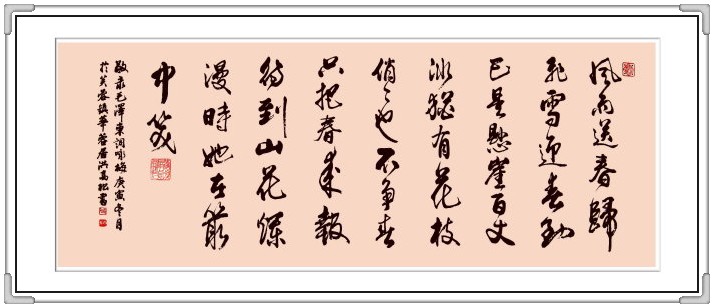 風雨送春歸
飛雪迎春到
已是懸崖百丈
冰猶有花枝
俏々也不爭春
只把春來報
待到山花爛
漫時她在叢
中笑
敬录毛澤東詞咏梅庚寅冬月
於芙蓉鎮華蓉居洪高松書